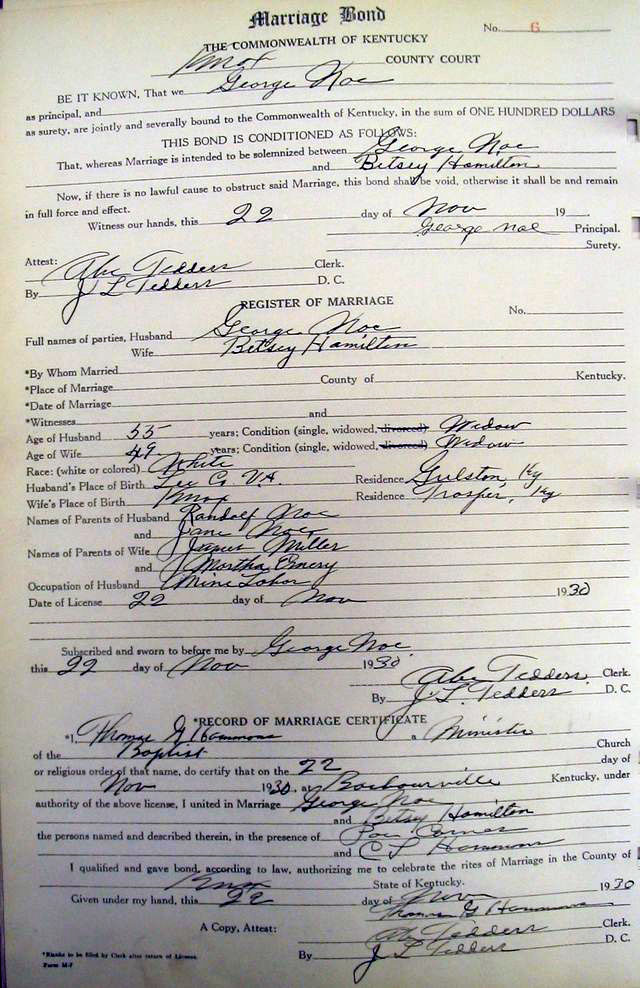 Marriage Bond
No. 6
THE COMMONWEALTH OF KENTUCKY
Knox COUNTY COURT
BE IT KNOWN, That we George Noe
as principal, and
as surety, are jointly and severally bound to the Commonwealth of Kentucky, in the sum of ONE HUNDRED DOLLARS
THIS BOND IS CONDITIONED AS FOLLOWS:
That, whereas Marriage is intended to be solemnized between George Noe
and Betsey Hamilton
Now, if there is no lawful cause to obstruct said Marriage, this bond shall be void, otherwise it shall be and remain
in full force and effect.
Witness our hands, this 22 day of Nov 19
George Noe Principal.
Surety.
Attest: Abe Tedders Clerk.
By J L Tedders D. C.
REGISTER OF MARRIAGE
No.
Full names of parties, Husband George Noe
Wife Betsey Hamilton
*By Whom Married
*Place of Marriage County of Kentucky.
*Date of Marriage
*Witnesses and
Age of Husband 55 years; Condition (single, widowed, divorced) Widow
Age of Wife 49 years; Condition (single, widowed, divorced) Widow
Race: (white or colored) White
Husband's Place of Birth Lee Co VA. Residence Gulston, Ky
Wife's Place of Birth Knox Residence Trosper, Ky
Names of Parents of Husband Randolf Noe
and Jane Noe
Names of Parents of Wife Miller
and Martha Emery
Occupation of Husband Mine Labor
Date of License 22 day of Nov 1930
Subscribed and sworn to before me by George Noe
this 22 day of Nov 1930
Abe Tedders Clerk.
By J. L. Tedders D. C.
*RECORD OF MARRIAGE CERTIFICATE
*I, Thomas G Hammons a Minister
of the Baptist Church
or religious order of that name, do certify that on the 22 day of
Nov 1930, at Barbourville Kentucky, under
authority of the above license, I united in Marriage George Noe
and Betsy Hamilton
the persons named and described therein, in the presence of
and C L Hammons
I qualified and gave bond, according to law, authorizing me to celebrate the rites of Marriage in the County of
Knox State of Kentucky.
Given under my hand, this 22 day of Nov 1930
Thomas G Hammons
A Copy, Attest: Abe Tedders Clerk.
By J L Tedders D. C.
*Blanks to be filed by Clerk after return of License.
Form M-F